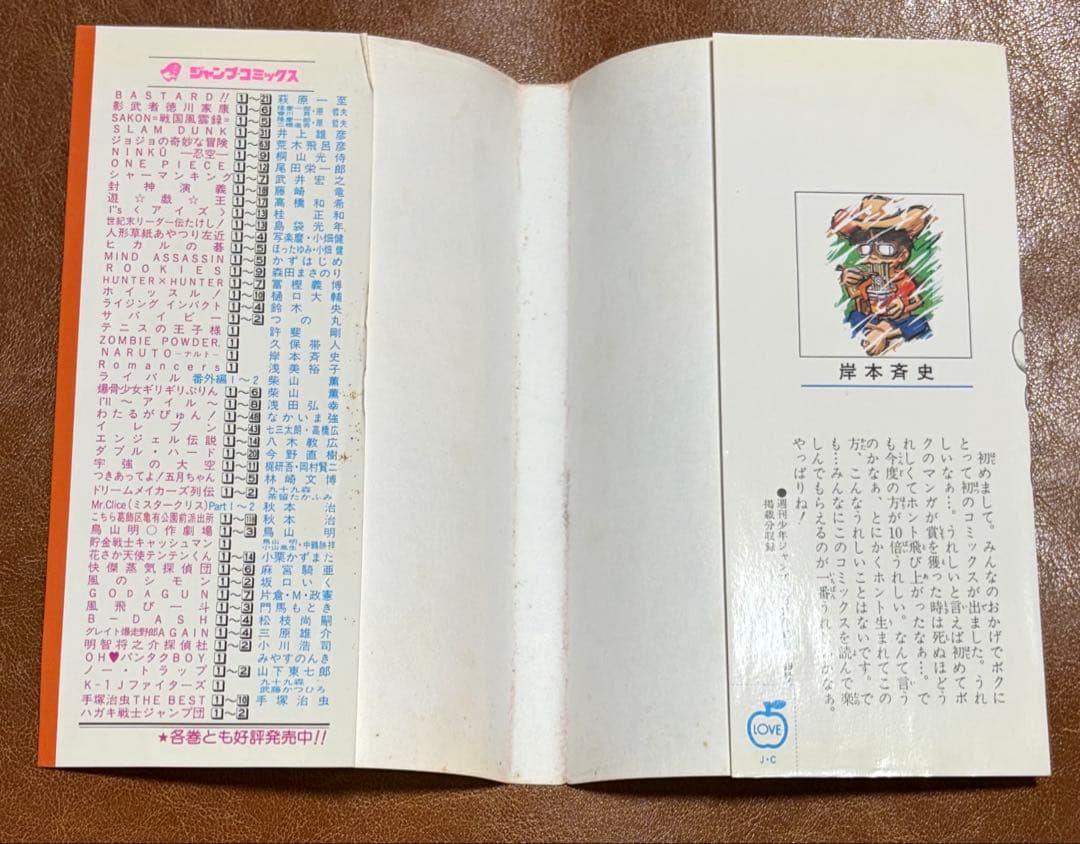 ジャンプ・コミックス
BASTARD!! 1〜21 萩原一至
影武者徳川家康 1〜6 隆慶一郎・原哲夫
SAKON=戦国風雲録= 1〜5 隆慶一郎・原哲夫
SLAM DUNK 1〜31 井上雄彦
ジョジョの奇妙な冒険 1〜63 荒木飛呂彦
NINKŪ—忍空— 1〜9 桐山光侍
ONE PIECE 1〜12 尾田栄一郎
シャーマンキング 1〜7 武井宏之
封神演義 1〜18 藤崎竜
遊☆戯☆王 1〜17 高橋和希
I"s〈アイズ〉 1〜13 桂正和
世紀末リーダー伝たけし! 1〜13 島袋光年
人形草紙あやつり左近 1〜4 写楽麿・小畑健
ヒカルの碁 1〜5 ほったゆみ・小畑健
MIND ASSASSIN 1〜5 かずはじめ
ROOKIES 1〜9 森田まさのり
HUNTER×HUNTER 1〜7 冨樫義博
ホイッスル! 1〜10 樋口大輔
ライジング インパクト 1〜4 鈴木央
サバイビー 1〜2 つの丸
テニスの王子様 1 許斐剛
ZOMBIE POWDER. 1 久保帯人
NARUTO—ナルト— 1 岸本斉史
Romancers 1 浅美裕子
ライバル 番外編1〜2 柴山薫
爆骨少女ギリギリぷりん 1〜6 柴山薫
I'll〜アイル〜 1〜8 浅田弘幸
わたるがぴゅん! 1〜48 なかいま強
イレブン 1〜43 七三太朗・高橋広
エンジェル伝説 1〜14 八木教広
ダブル・ハード 1〜20 今野直樹
宇強の大空 1〜11 梶研吾・岡村賢二
つきあってよ!五月ちゃん 1〜5 林崎文博
ドリームメイカーズ列伝 1〜2 九十九森 茶留たかふみ
Mr.Clice(ミスタークリス)Part1〜2 秋本治
こちら葛飾区亀有公園前派出所 秋本治
鳥山明○作劇場 1〜3 鳥山明
貯金戦士キャッシュマン 1 鳥山明 小山高生・中鶴勝祥
花さか天使テンテンくん 1〜14 小栗かずまた
快傑蒸気探偵団 1〜6 麻宮騎亜
風のシモン 1〜2 坂口いく
GODAGUN 1〜7 片倉・M・政憲
風飛び一斗 1〜3 門馬もとき
B-DASH 1〜4 松枝尚嗣
グレイト爆走野郎AGAIN 1〜4 三原雄介
明智将之介探偵社 1〜2 小川浩司
OH♥バンタクBOY 1 みやすのんき
ノー・トラップ 1〜2 山下東七郎
K-1Jファイターズ 1 九十九森 武藤かつひろ
手塚治虫THE BEST 1〜10 手塚治虫
ハガキ戦士ジャンプ団 1〜2
★各巻とも好評発売中!!
岸本斉史
初めまして。みんなのおかげでボクに
とって初のコミックスが出ました。うれ
しいなぁ…。うれしいと言えば初めてボ
クのマンガが賞を獲った時は死ぬほどう
れしくてホント飛び上がったなぁ…。で
も今度の方が10倍うれしい。なんて言う
のかなぁ、とにかくホント生まれてこの
方、こんなうれしいことはないです。で
も…みんなにこのコミックスを読んで楽
しんでもらえるのが一番うれしいかなぁ。
やっぱりね!
●週刊少年ジャンプ
掲載分収録
LOVE
J・C